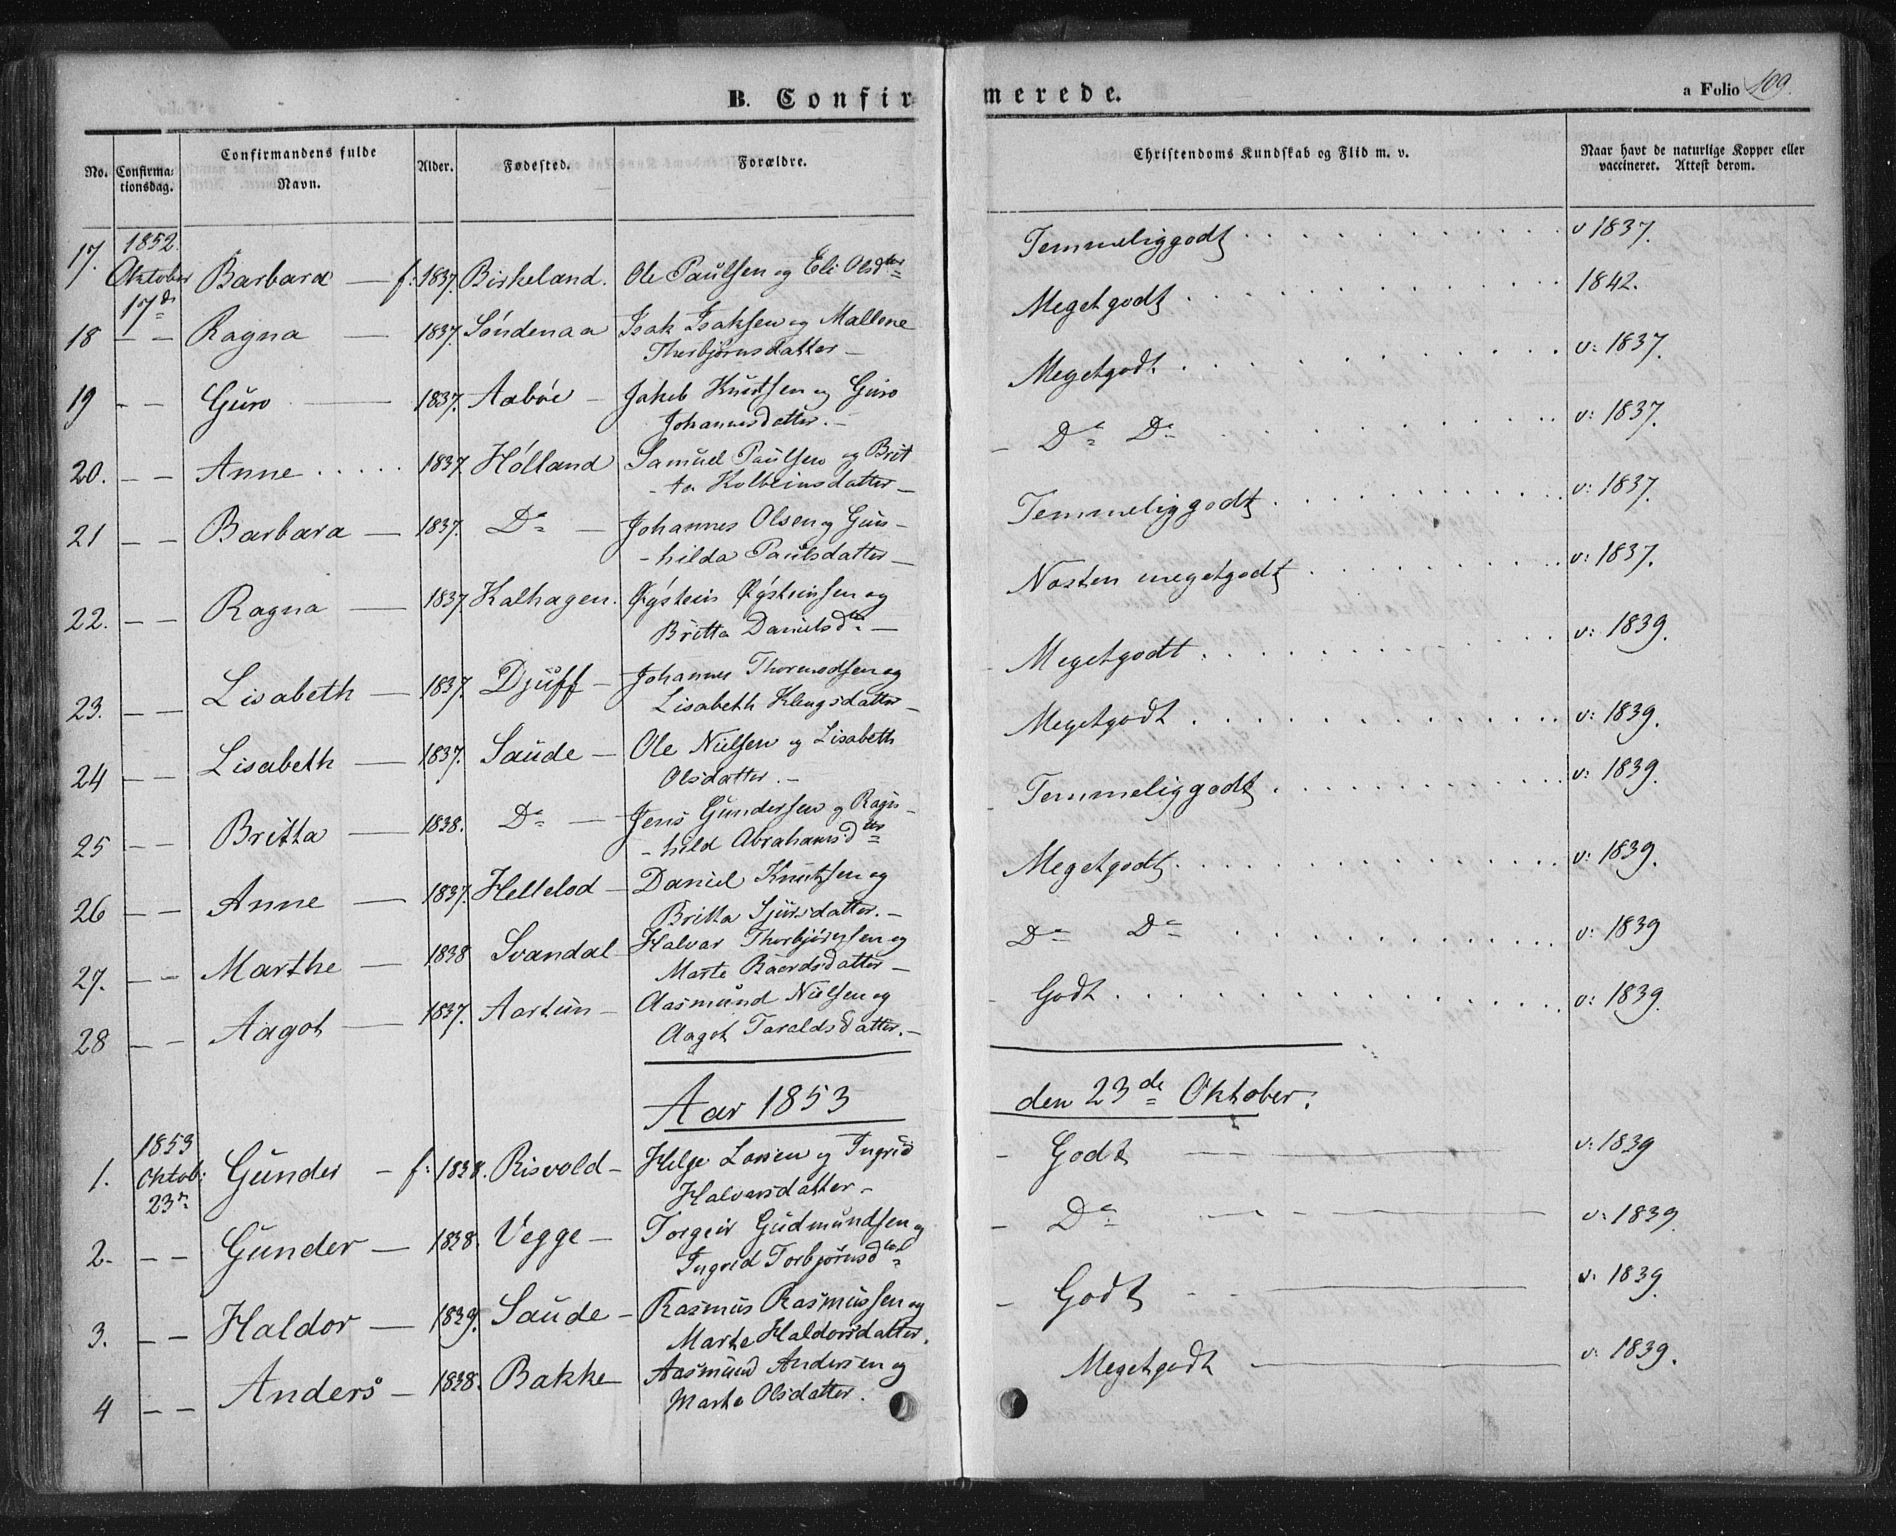 B. Confirmerede.
a Folio 109.
No. Confirmationsdag. Confirmandens fulde Navn. Alder. Fødested. Forældre. Christendoms Kundskab og Flid m. v. Naar havt de naturlige Kopper eller vaccineret. Attest derom.
17. 1852. Oktober 17de Barbara — f. 1837. Birkeland. Ole Paulsen og Eli Olsdtr Temmeliggodt v 1837.
18 — — Ragna — 1837. Søndenaa Isak Isaksen og Mallene Thorbjørnsdatter — Megetgodt 1842.
19 — — Guro — 1837. Aabøe — Jakob Knutsen og Guro Johannesdatter. — Megetgodt. v: 1837.
20. — — Anne 1837. Hólland Samuel Paulsen og Brit-ta Kolbeinsdatter — — Do Do v: 1837.
21 — — Barbara — 1837. Do — Johannes Olsen og Gun-hilda Paulsdatter — Temmeliggodt v: 1837.
22. — — Ragna — 1837. Kalhagen. Øystein Øysteinsen og Britta Danielsdtr — Næsten megetgodt v: 1837.
23. — — Lisabeth — 1837. Djuff — Johannes Thormodsen og Lisabeth Klengsdatter — Megetgodt v: 1839.
24 — — Lisabeth — 1837. Saude — Ole Nielsen og Lisabeth Olsdatter. — Megetgodt v: 1839.
25 — — Britta — 1838. Do — Jens Gundersen og Ragn-hild Abrahamsdtr Temmeliggodt v: 1839.
26 — — Anne — 1837. Hellelod — Daniel Knutsen og Britta Sjursdatter. — Megetgodt v: 1839.
27. — — Marthe — 1838 Svandal — Halvar Thorbjørnsen og Marte Baardsdatter — Do Do v: 1839
28 — — Aagot — 1837. Aartun — Aasmund Nielsen og Aagot Taraldsdatter. — — Godt v: 1839.
Aar 1853 den 23de Oktober.
1. 1853 Oktob: 23de Gunder — f: 1838. Risvold — Helge Larsen og Ingrid Halvarsdatter — — Godt — v: 1839
2. — — Gunder — 1838. Vegge — Torgeir Gudmundsen og Ingrid Torbjørnsdtr — Do — v: 1839.
3. — — Haldor — 1839. Saude — Rasmus Rasmussen og Marte Haldorsdatter. — Godt — v: 1839.
4 — — Anders — 1838. Bakke — Aasmund Andersen og Marte Olsdatter. Megetgodt — v: 1839.